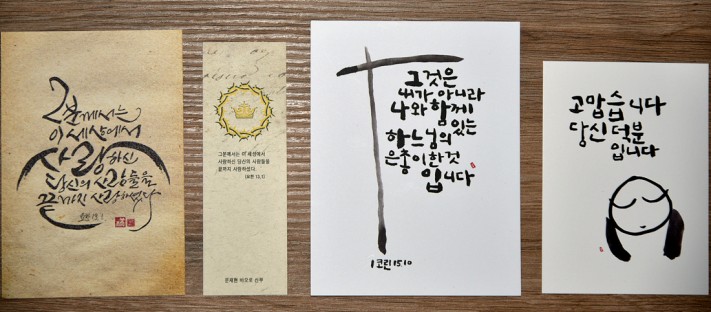 그분께서는
이 세상에서
사랑하신
당신의 사람들을
끝까지 사랑하셨다
요한 13, 1
그분께서는 이 세상에서
사랑하신 당신의 사람들을
끝까지 사랑하셨다.
(요한 13,1)
문재현 비오로 신부
그것은
내가 아니라
나와 함께
있는
하느님의
은총이 한것
입니다
1코린 15 10
고맙습니다
당신 덕분
입니다